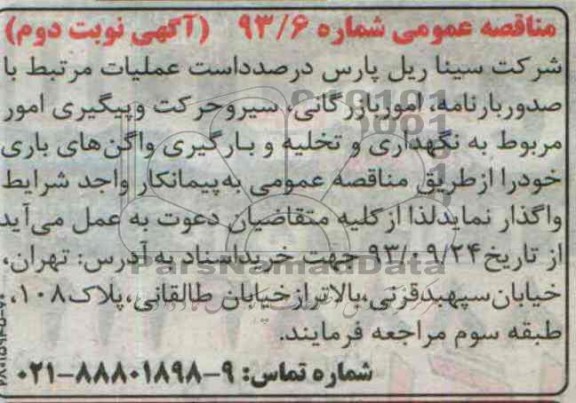 مناقصه عمومی شماره ۹۳/۶ (آگهی نوبت دوم)
شرکت سینا ریل پارس درصدداست عملیات مرتبط با
صدوربارنامه، اموربازرگانی، سیروحرکت وپیگیری امور
مربوط به نگهداری و تخلیه و بارگیری واگن‌های باری
خودرا ازطریق مناقصه عمومی به‌پیمانکار واجد شرایط
واگذار نمایدلذا ازکلیه متقاضیان دعوت به عمل می‌آید
از تاریخ ۹۳/۰۹/۲۴ جهت خریداسناد به آدرس: تهران،
ParsNamadData
خیابان سپهبدقرنی،بالاتراز خیابان طالقانی، پلاک ۱۰۸،
طبقه سوم مراجعه فرمایند.
شماره تماس: ۹-۸۸۸۰۱۸۹۸-۰۲۱